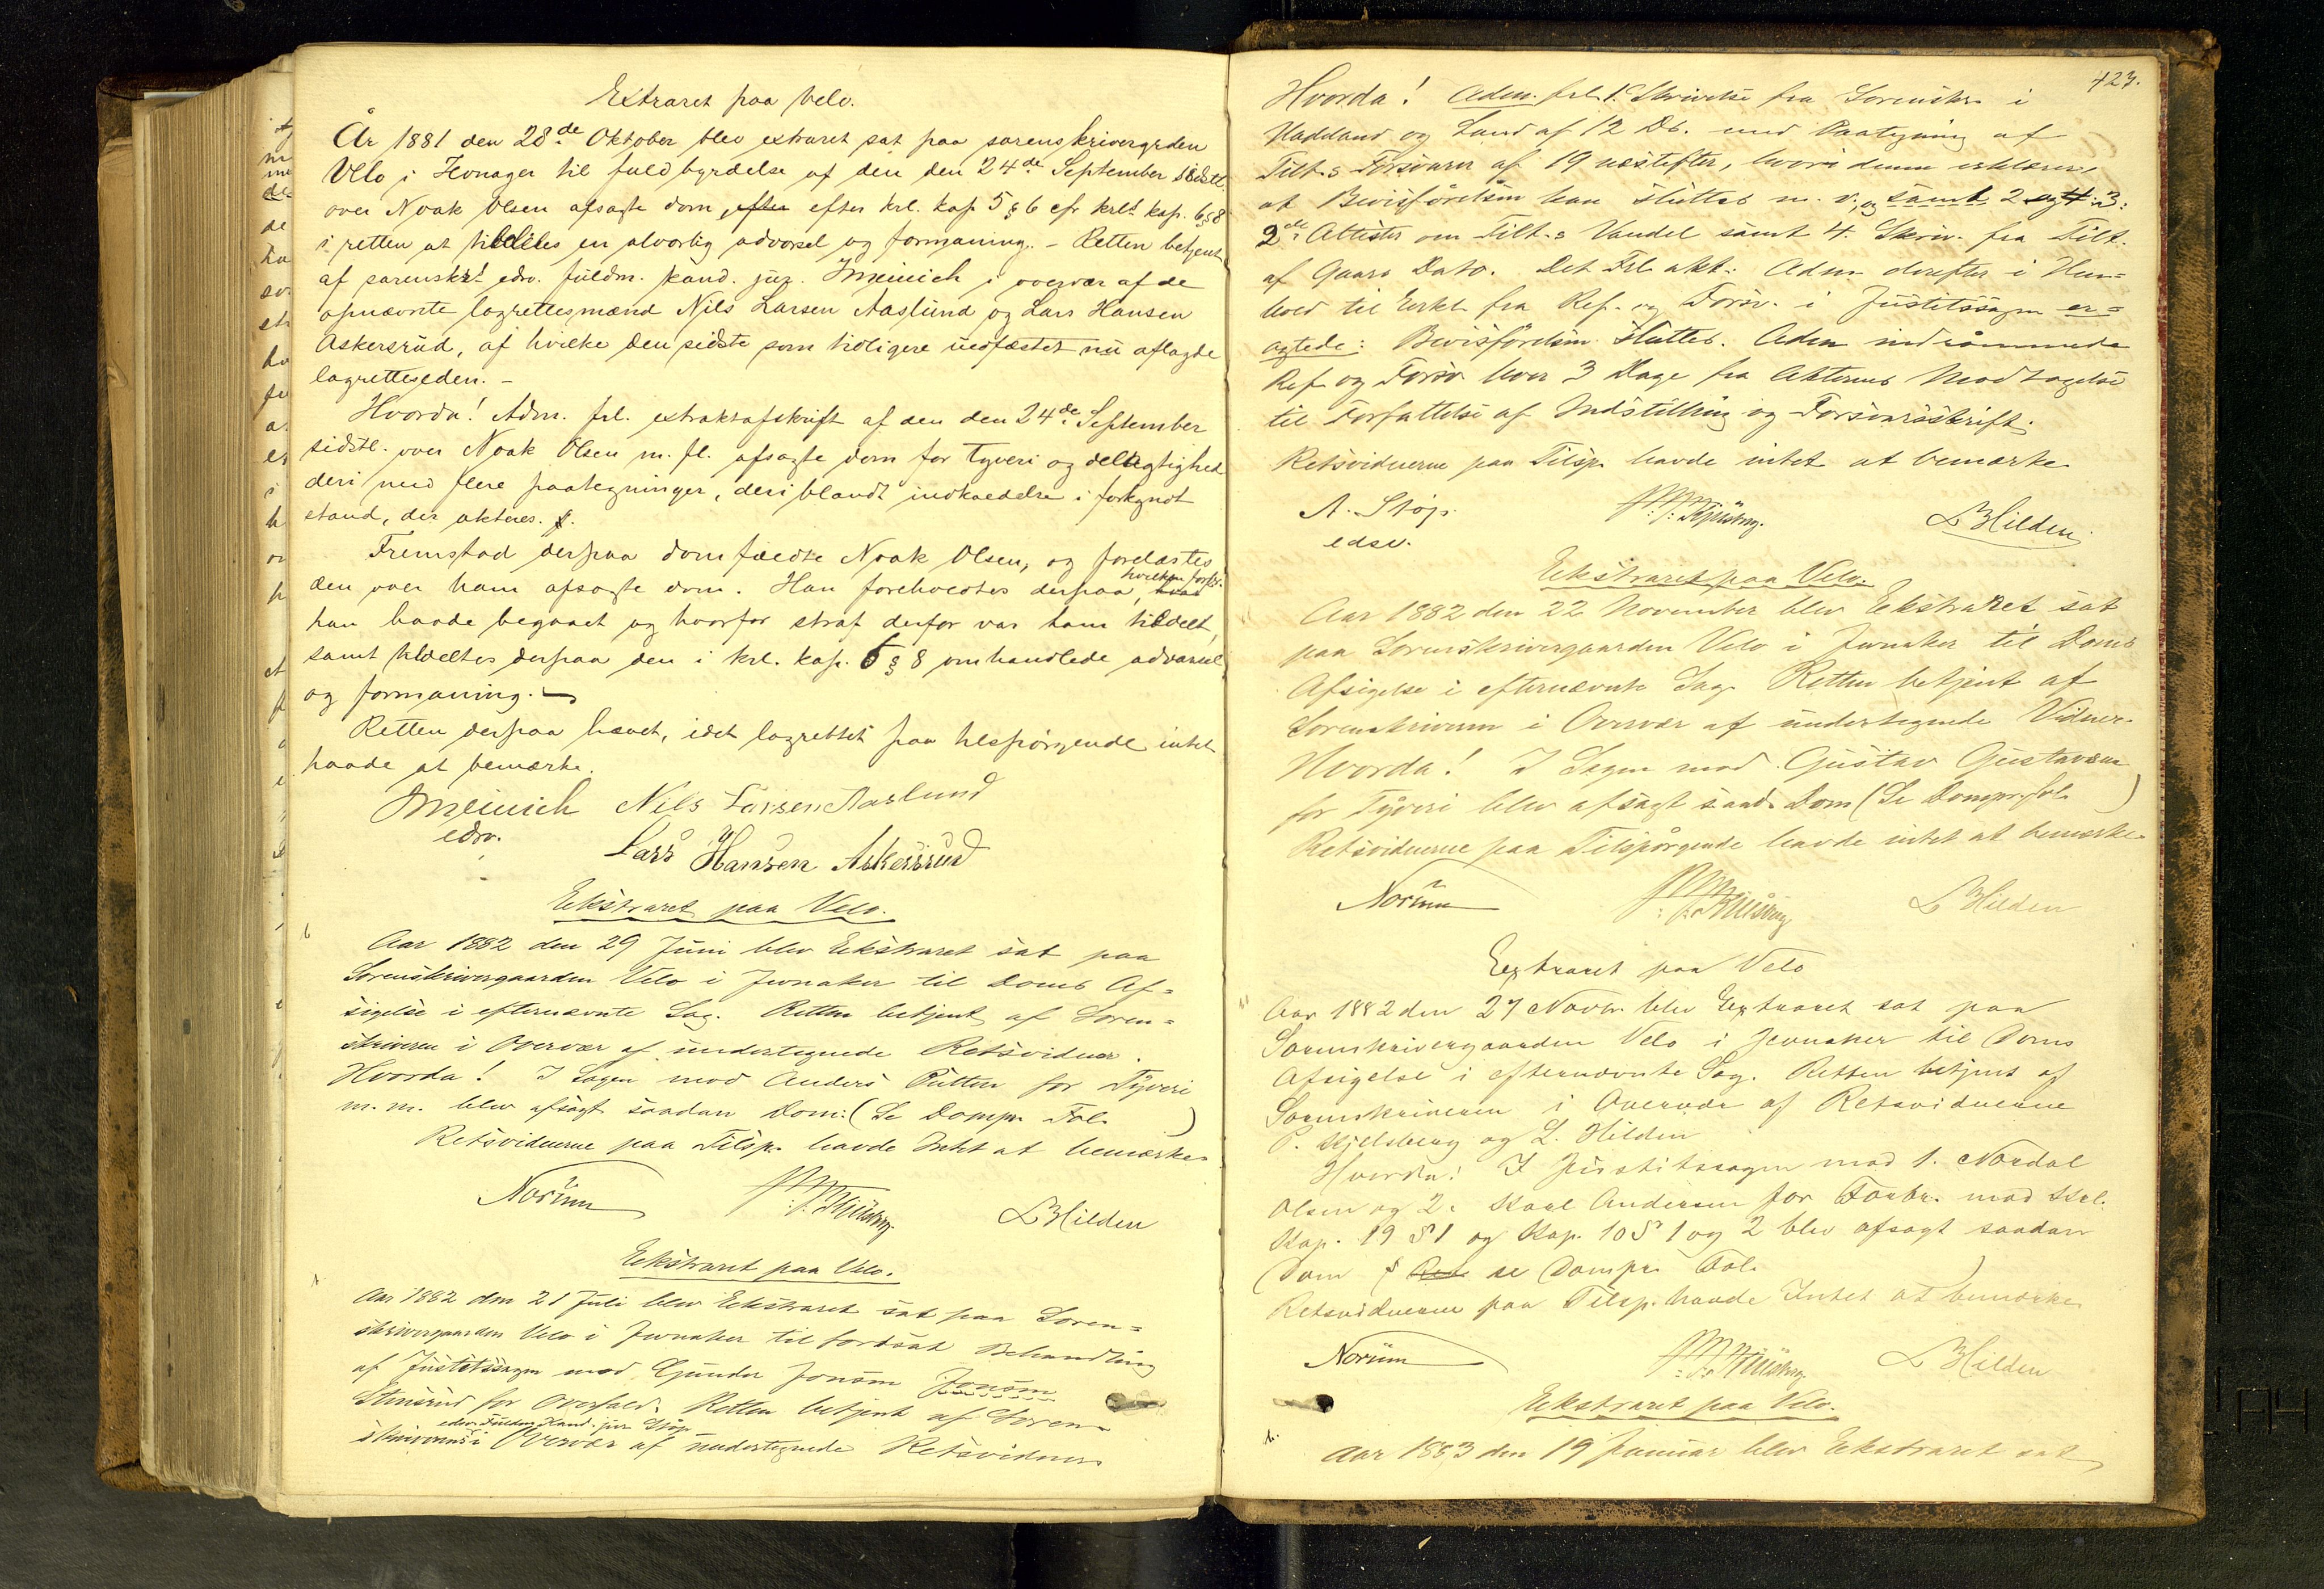 Extraret paa Velo.
År 1881 den 28de Oktober blev extraret sat paa sorenskrivergrden
Velo i Jevnager til fuldbyrdelse af den den 24de September sidstl.
over Noak Olsen afsagte dom, efter efter krl. kap 5 § 6 cfr krls kap. 6 § 8
i retten at tildeles en alvorlig advarsel og formaning. – Retten betjent
af sorenskr.s edsv. fuldm. kand. jur. Imeinich i overvær af de
opnævnte lagrettesmænd Nils Larsen Aaslund og Lars Hansen
Askersrud, af hvilke den sidste som tidligere uedfæstet nu aflagde
lagretteseden. –
Hvorda! Adm. frl. extraktafskrift af den den 24de September
sidstl. over Noak Olsen m. fl. afsagte dom for tyveri og delagtighed
deri med flere paategninger, deriblandt indkaldelse i forkyndt
stand, der akteres.
Fremstod derpaa domfældte Noak Olsen, og forelæstes
den over ham afsagte dom. Han foreholdtes derpaa, hvad hvilken forbr.
han havde begaaet og hvorfor straf derfor var ham tildelt,
samt tildeltes derpaa den i krl. kap. 6 § 8 omhandlede advarsel
og formaning. –
Retten derpaa hævet, idet lagrettet paa tilspørgende intet
havde at bemærke.
Imeinich Nils Larsen Aaslund
edsv.
Lars Hansen Askersrud
Ekstraret paa Velo.
Aar 1882 den 29 Juni blev Ekstraret sat paa
Sorenskrivergaarden Velo i Jevnaker til Doms Af=
sigelse i efternævnte Sag. Retten betjent af Soren=
skriveren i Overvær af undertegnede Retsvidner.
Hvorda! I Sagen mod Anders Putten for Tyveri
m. m. blev afsagt saadan Dom: (Se Dompr. Fol. )
Retsvidnerne paa Tilsp. havde Intet at bemærke
Norum L Hilden
Ekstraret paa Velo.
Aar 1882 den 21 Juli blev Ekstraret sat paa Soren=
skrivergaarden Velo i Jevnaker til fortsat Behandling
af Justitssagen mod Gunder Jonsen Jonsen
Stensrud for Overfald. Retten betjent af Soren
skriverens edsv. Fuldm. Kand. jur. Støp i Overvær af undertegnede Retsvidner
423.
Hvorda! Adm. frl. 1. Skrivelse fra Sorenskr. i
Hadeland og Land af 12 Ds. med Paategning af
Tilt.s Forsvarer af 19 næstefter, hvori denne erklærer,
at Bevisførelsen kan sluttes m. v., og samt 2 og 3:
2de Attester om Tilt.s Vandel samt 4. Skriv. fra Tilt.
af Gaars Dato. Det Frl. akt: Adm. derefter i Hen=
hold til Erkl. fra Ref. og Forsv. i Justitssagen er=
agtede: Bevisførelsen sluttes. Adm. indrømmede
Ref. og Forsv. hver 3 Dage fra Akternes Modtagelse
til Forfattelse af Indstilling og Forsvarsskrift.
Retsvidnerne paa Tilsp. havde intet at bemærke
A. Støp. L Hilden
edsv.
Ekstraret paa Velo.
Aar 1882 den 22 November blev Ekstraret sat
paa Sorenskrivergaarden Velo i Jevnaker til Doms
Afsigelse i efternævnte Sag. Retten betjent af
Sorenskriveren i Overvær af undertegnede Vidner.
Hvorda! I Sagen mod Gustav Gustavsen
for Tyveri blev afsagt saad. Dom (Se Dompr. fol. )
Retsvidnerne paa Tilspørgende havde intet at bemærke.
Norum L Hilden
Extraret paa Velo
Aar 1882 den 27 Novbr. blev Extraret sat paa
Sorenskrivergaarden Velo i Jevnaker til Doms
Afsigelse i efternævnte Sag. Retten betjent af
Sorenskriveren i Overvær af Retsvidnerne
P. Kjelsberg og L. Hilden
Hvorda: I Justitssagen mod 1. Nordal
Olsen og 2. Karl Andersen for Forbr. mod Krl.
Kap. 19 § 1 og Kap. 10 § 1 og 2 blev afsagt saadan
Dom se Dompr. Fol. )
Retsvidnerne paa Tilsp. havde Intet at bemærke
Norum L Hilden
Ekstraret paa Velo.
Aar 1883 den 19 Januar blev Ekstraret sat